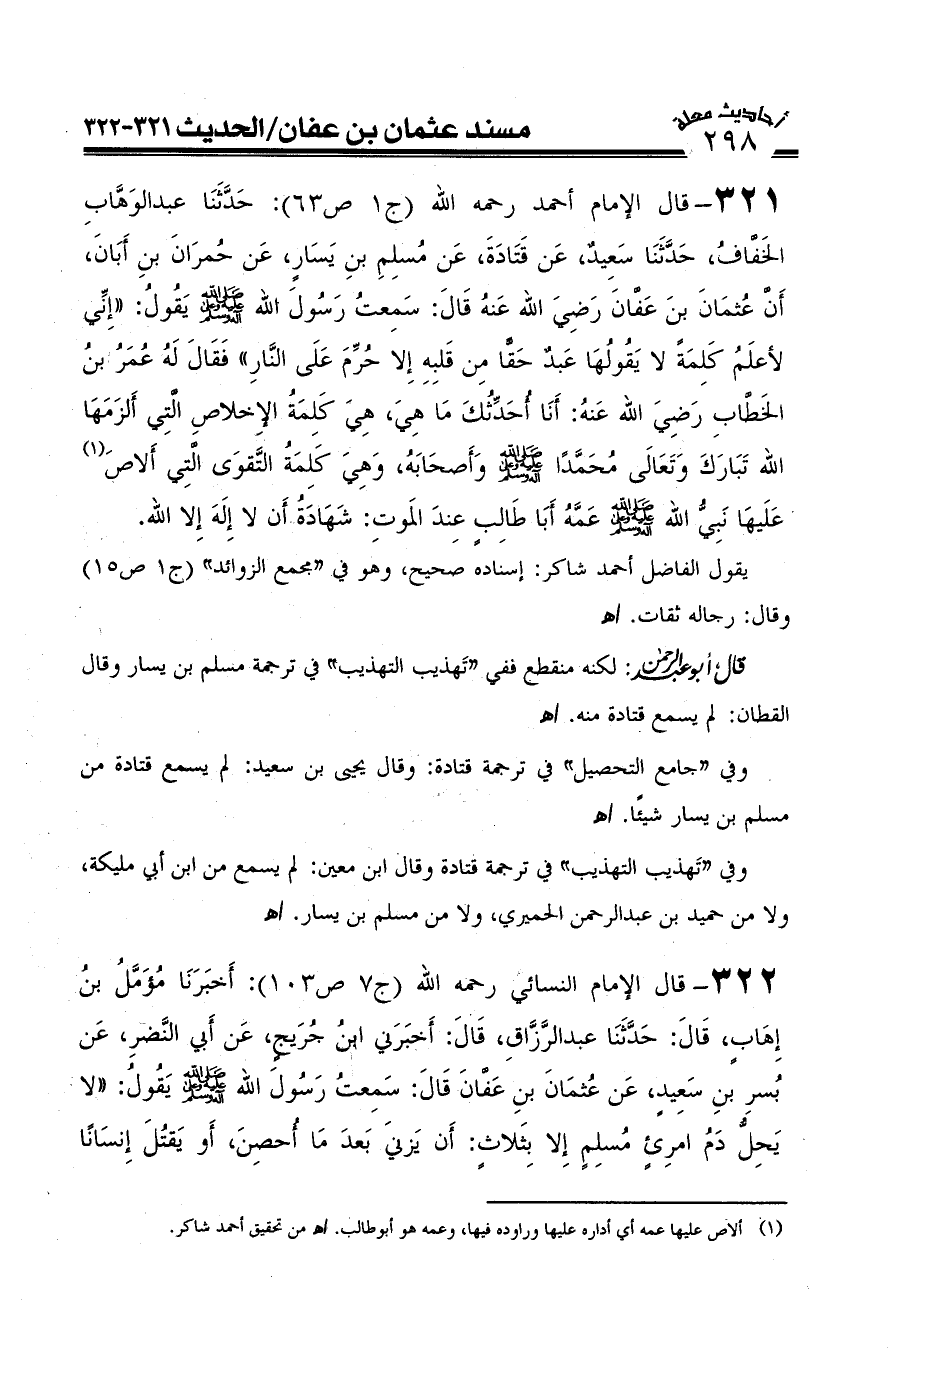 أحاديث معلة
٢٩٨
مسند عثمان بن عفان/الحديث ٣٢١-٣٢٢
٣٢١- قال الإمام أحمد رحمه الله (ج١ ص٦٣): حَدَّثَنَا عبدالوَهَّابِ
الخَفَّافُ، حَدَّثَنَا سَعِيدٌ، عَن قَتَادَةَ، عَن مُسلِمِ بنِ يَسَارٍ، عَن حُمرَانَ بنِ أَبَانَ،
أَنَّ عُثمَانَ بنَ عَفَّانَ رَضِيَ الله عَنهُ قَالَ: سَمِعتُ رَسُولَ الله ﷺ يَقُولُ: «إِنِّي
لأعلَمُ كَلِمَةً لا يَقُولُهَا عَبدٌ حَقًّا مِن قَلبِهِ إلا حُرِّمَ عَلَى النَّارِ» فَقَالَ لَهُ عُمَرُ بنُ
الخَطَّابِ رَضِيَ الله عَنهُ: أَنَا أُحَدِّثُكَ مَا هِيَ، هِيَ كَلِمَةُ الإخلاصِ الَّتِي أَلزَمَهَا
الله تَبَارَكَ وَتَعَالَى مُحَمَّدًا ﷺ وَأَصحَابَهُ، وَهِيَ كَلِمَةُ التَّقوَى الَّتِي أَلاصَ(١)
عَلَيهَا نَبِيُّ الله ﷺ عَمَّهُ أَبَا طَالِبٍ عِندَ الموتِ: شَهَادَةُ أَن لا إِلَهَ إلا الله.
يقول الفاضل أحمد شاكر: إسناده صحيح، وهو في «مجمع الزوائد» (ج١ ص١٥)
وقال: رجاله ثقات. اهـ
قال أبو عبدالرحمن: لكنه منقطع ففي «تَهذيب التهذيب» في ترجمة مسلم بن يسار وقال
القطان: لم يسمع قتادة منه. اهـ
وفي «جامع التحصيل» في ترجمة قتادة: وقال يحيى بن سعيد: لم يسمع قتادة من
مسلم بن يسار شيئًا. اهـ
وفي «تَهذيب التهذيب» في ترجمة قتادة وقال ابن معين: لم يسمع من ابن أبي مليكة،
ولا من حميد بن عبدالرحمن الحميري، ولا من مسلم بن يسار. اهـ
٣٢٢- قال الإمام النسائي رحمه الله (ج٧ ص١٠٣): أَخبَرَنَا مُؤَمَّلُ بنُ
إِهَابٍ، قَالَ: حَدَّثَنَا عبدالرَّزَّاقِ، قَالَ: أَخبَرَنِي ابنُ جُرَيجٍ، عَن أَبِي النَّضرِ، عَن
بُسرِ بنِ سَعِيدٍ، عَن عُثمَانَ بنِ عَفَّانَ قَالَ: سَمِعتُ رَسُولَ الله ﷺ يَقُولُ: «لا
يَحِلُّ دَمُ امرِئٍ مُسلِمٍ إلا بِثَلاثٍ: أَن يَزنِيَ بَعدَ مَا أُحصِنَ، أَو يَقتُلَ إِنسَانًا
(١) ألاص عليها عمه أي أداره عليها وراوده فيها، وعمه هو أبوطالب. اهـ من تحقيق أحمد شاكر.